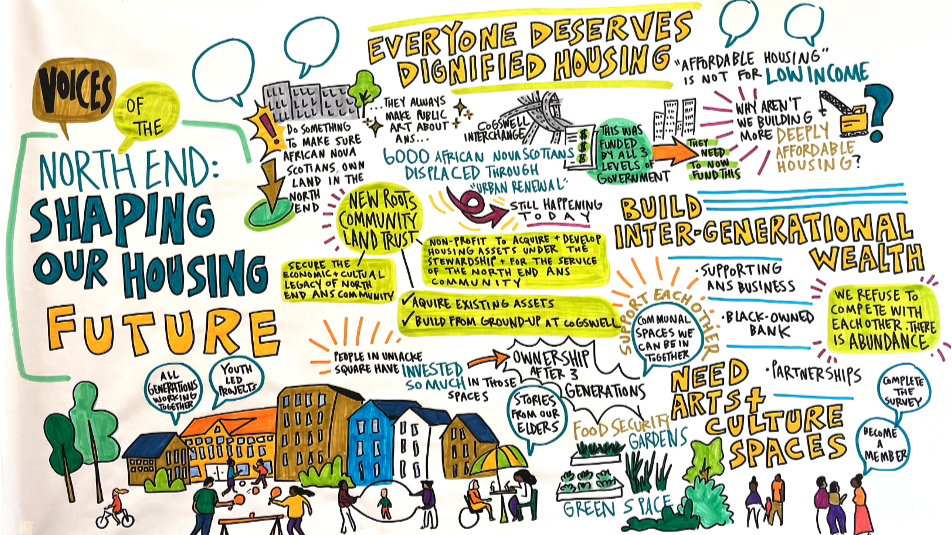 VOICES
OF
THE
NORTH END:
SHAPING
OUR HOUSING
FUTURE
EVERYONE DESERVES
DIGNIFIED HOUSING
DO SOMETHING
TO MAKE SURE
AFRICAN NOVA
SCOTIANS, OWN
LAND IN THE
NORTH
END
...THEY ALWAYS
MAKE PUBLIC
ART ABOUT
ANS...
COGSWELL
INTERCHANGE
6000 AFRICAN NOVA SCOTIANS
DISPLACED THROUGH
"URBAN RENEWAL"
STILL HAPPENING
TODAY
$
$
$
THIS WAS
FUNDED
BY ALL 3
LEVELS OF
GOVERNMENT
THEY
NEED
TO NOW
FUND THIS
"AFFORDABLE HOUSING"
IS NOT FOR LOW INCOME
WHY AREN'T
WE BUILDING
MORE DEEPLY
AFFORDABLE
HOUSING?
?
NEW ROOTS
COMMUNITY
LAND TRUST
SECURE THE
ECONOMIC + CULTUAL
LEGACY OF NORTH
END ANS COMMUNITY
NON-PROFIT TO ACQUIRE + DEVELOP
HOUSING ASSETS UNDER THE
STEWARDSHIP + FOR THE SERVICE
OF THE NORTH END ANS
COMMUNITY
✓ AQUIRE EXISTING ASSETS
✓ BUILD FROM GROUND-UP AT COGSWELL
BUILD
INTER-GENERATIONAL
WEALTH
• SUPPORTING
ANS BUSINESS
• BLACK-OWNED
BANK
• PARTNERSHIPS
WE REFUSE TO
COMPETE WITH
EACH OTHER. THERE
IS ABUNDANCE
SUPPORT EACH OTHER
COMMUNAL
SPACES WE
CAN BE IN
TOGETHER
PEOPLE IN UNIACKE
SQUARE HAVE INVESTED
SO MUCH IN THOSE
SPACES
OWNERSHIP
AFTER 3
GENERATIONS
NEED
ARTS +
CULTURE
SPACES
ALL
GENERATIONS
WORKING
TOGETHER
YOUTH
LED
PROJECTS
STORIES
FROM OUR
ELDERS
FOOD SECURITY
GARDENS
GREEN SPACE
COMPLETE
THE
SURVEY
BECOME
A
MEMBER